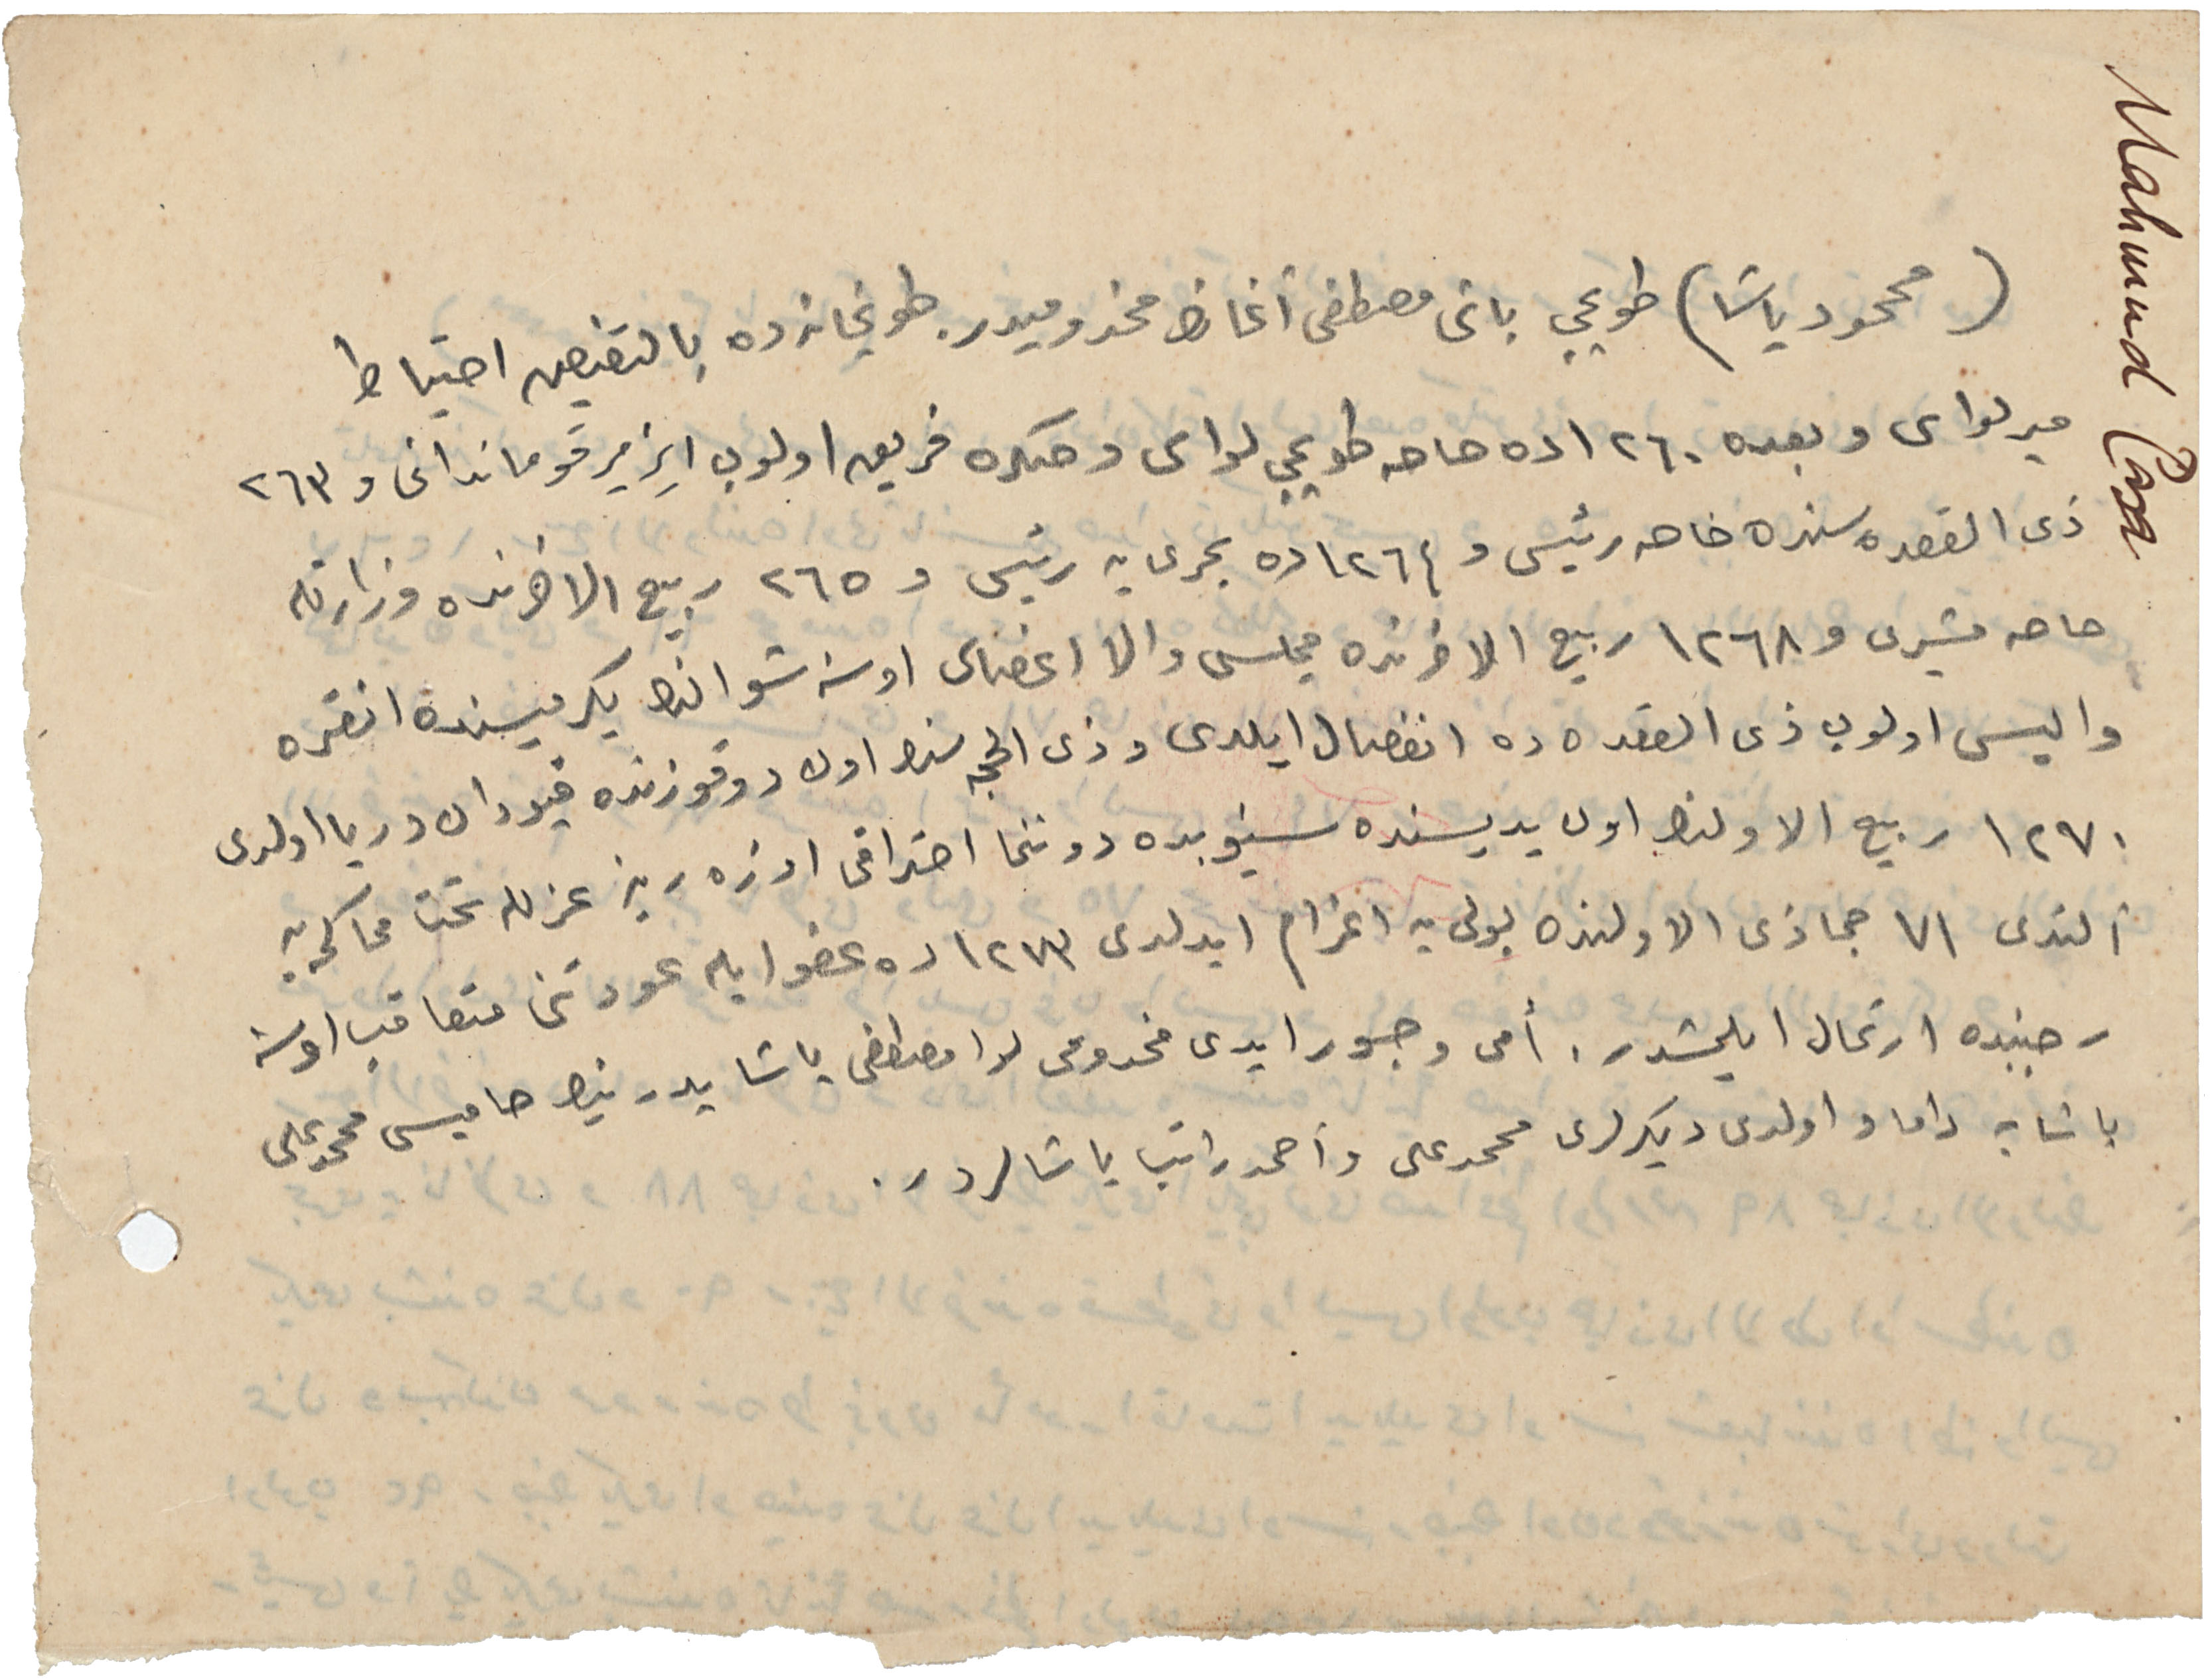 Mahmud Paşa
(محمود پاشا) طوپجی باشی مصطفی آغانڭ مخدومیدر. طوپخانه‌ده بالتفیض احتیاط
میرلوای و بعده ١٢٦٠ ده خاصه طوپجی لوای و صكره فریق اولوب ازمیر قوماندانی و ٢٦٣
ذی القعده سنده خاصه رئیسی و ١٢٦٤ ده بحریه رئیسی و ٢٦٥ ربیع الاخرنده وزارتله
خاصه مشیری و ١٢٦٨ ربیع الاخرنده مجلس والا اعضاسی او سنه شوالنڭ یكرمیسنده انقره
والیسی اولوب ذی القعده ده انفصال ایلدی و ذی الحجه سنڭ اون دوقوزنده قپودان دریا اولدی
١٢٧٠ ربیع الاولنڭ اون یدیسنده سینوبده دوننما احتراقی اوزرینه عزله تحت محاكمه یه
آلندی ٧١ جماذی الاولنده بولی یه اعزام ایدلدی ١٢٧٣ ده عفو ایله عودتنی متعاقب او سنه
رجبنده ارتحال ایلمشدر. أمی و جسور ایدی مخدومی لالا مصطفی پاشا یدرینڭ حامیسی محمد علی
پاشایه داماد اولدی دیگرلری محمد علی و احمد راتب پاشالردر.